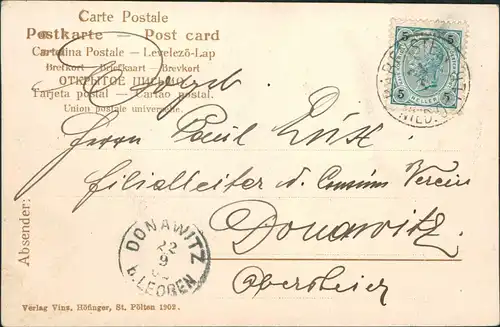 Carte Postale
Postkarte — Post card
Cartolina Postale — Levelező-Lap
Brefkort — Briefkaart — Brevkort
ОТКРЫТОЕ ПИСЬМО
Tarjeta postal — Cartão postal.
Union postale universelle.
5 5
5 HELLER 5
Herrn Paul
Filialleiter d. Consum Verein
Donawitz
Obersteier
Absender:
DONAWITZ
22
9
b. LEOBEN
Verlag Vinz. Höfinger, St. Pölten 1902.